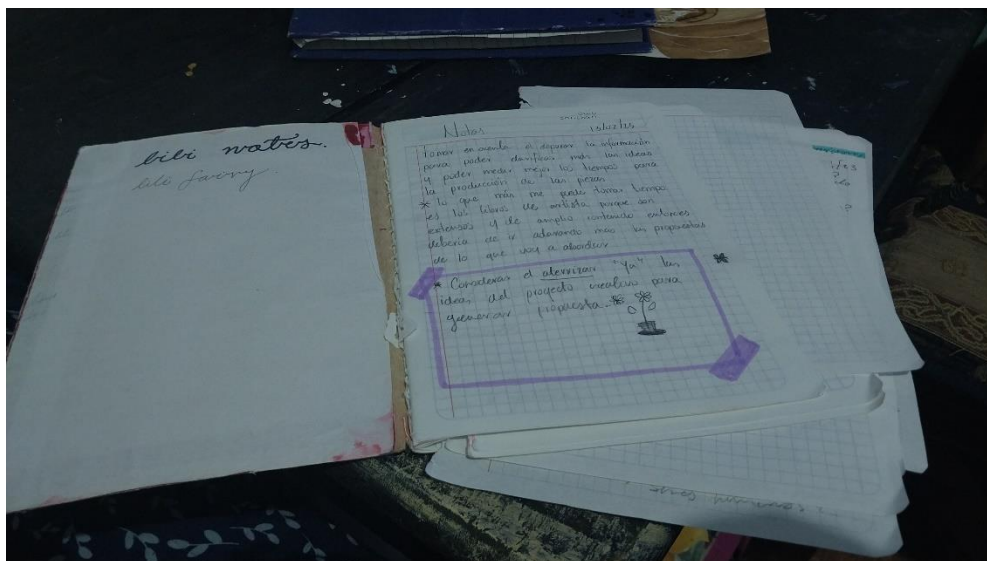 bibi wates.
bibi
Notas 15/02/25
tomar en cuenta el separar la información
para poder clarificar más las ideas
y poder medir mejor los tiempos para
la producción de las piezas
* lo que más me puede tomar tiempo
es los libros de artista porque son
extensos y de amplio contenido entonces
debería de ir adelantando mas las propuestas
de lo que voy a abordar
* Considerar el aterrizar "ya" las
ideas del proyecto creativo para
generar propuesta.